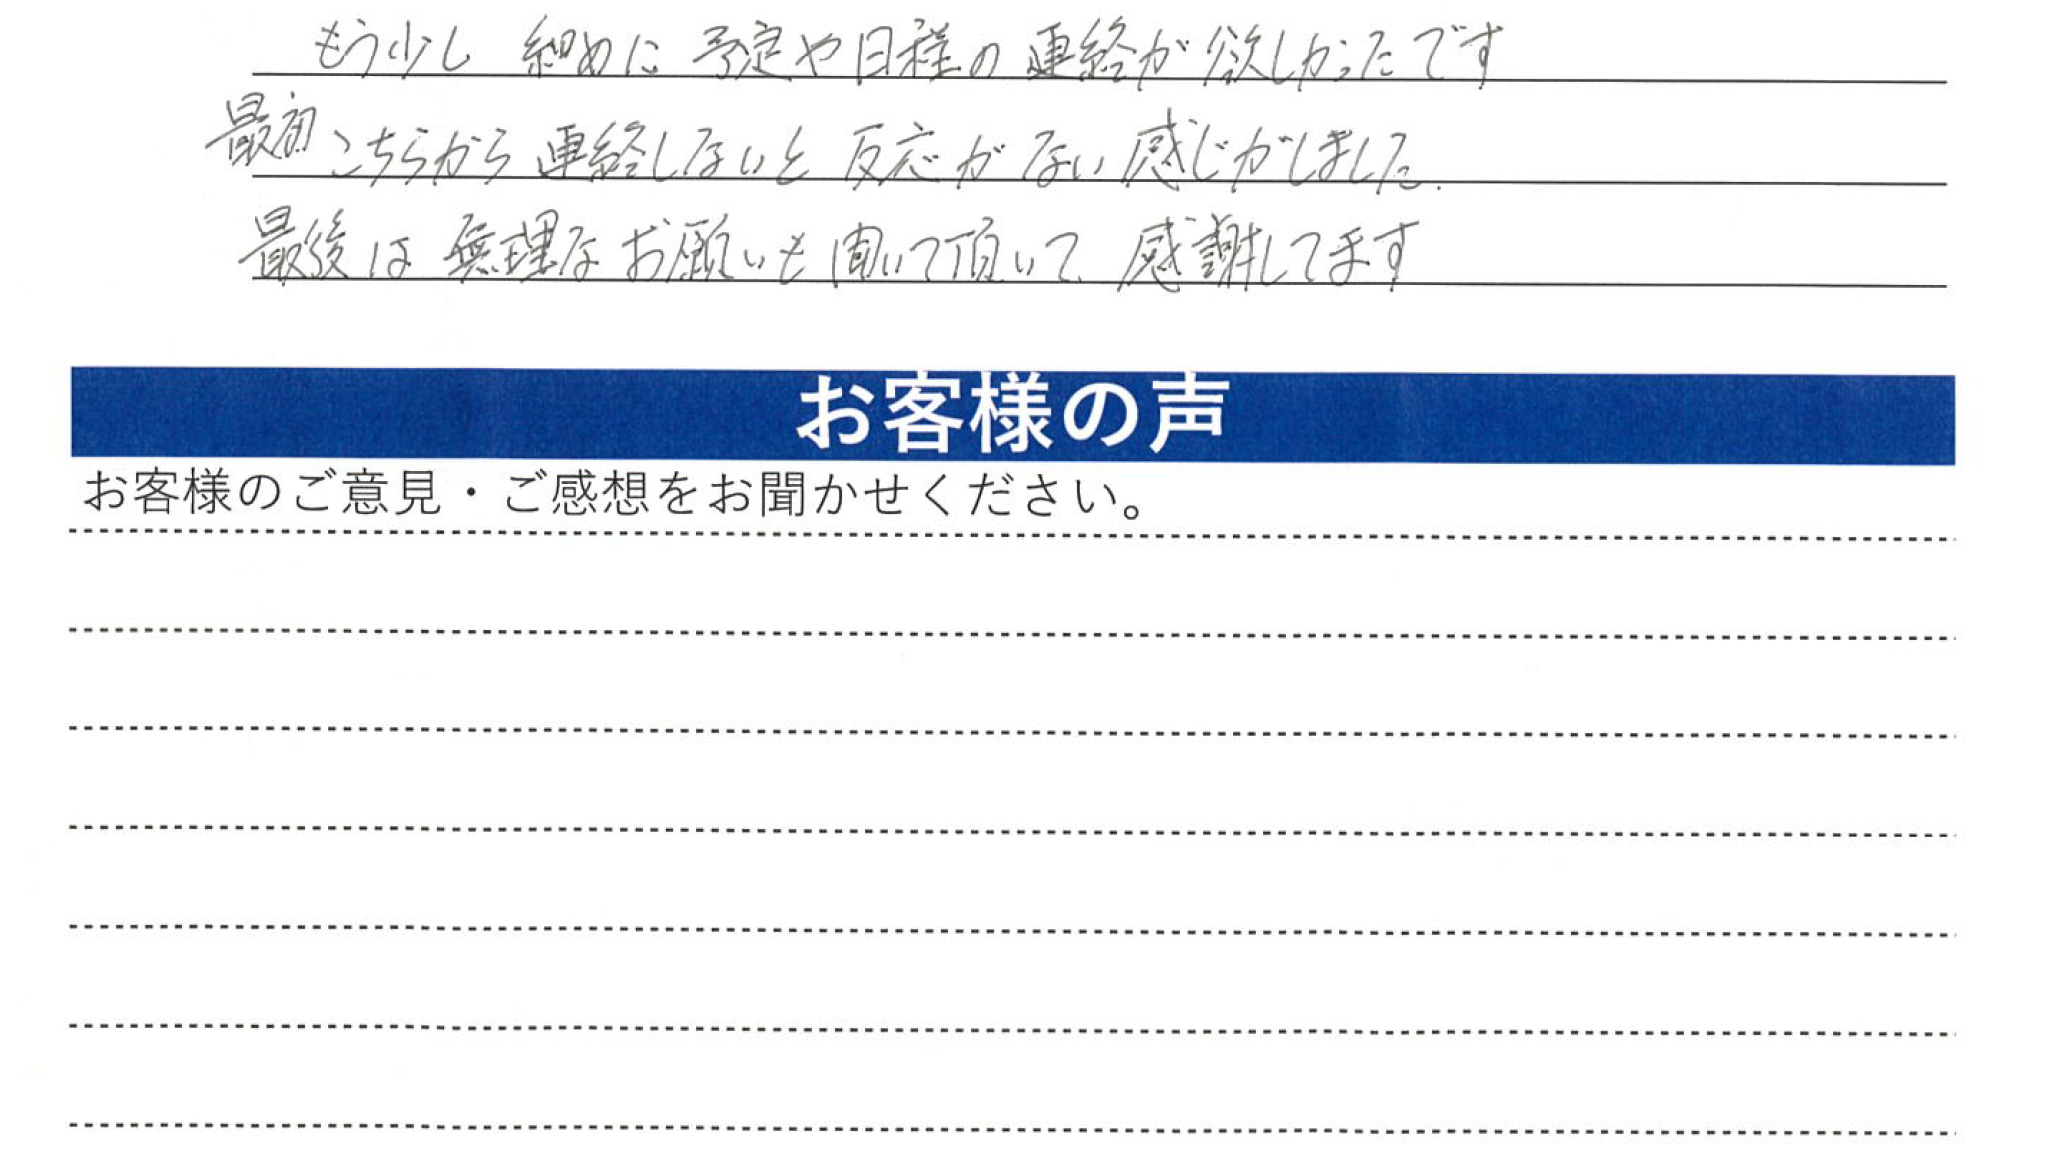 もう少し 細めに 予定や日程の 連絡が 欲しかったです
最初 こちらから 連絡しないと 反応が ない 感じがしました。
最後は 無理な お願いも 聞いて 頂いて、感謝してます
お客様の声
お客様のご意見・ご感想をお聞かせください。